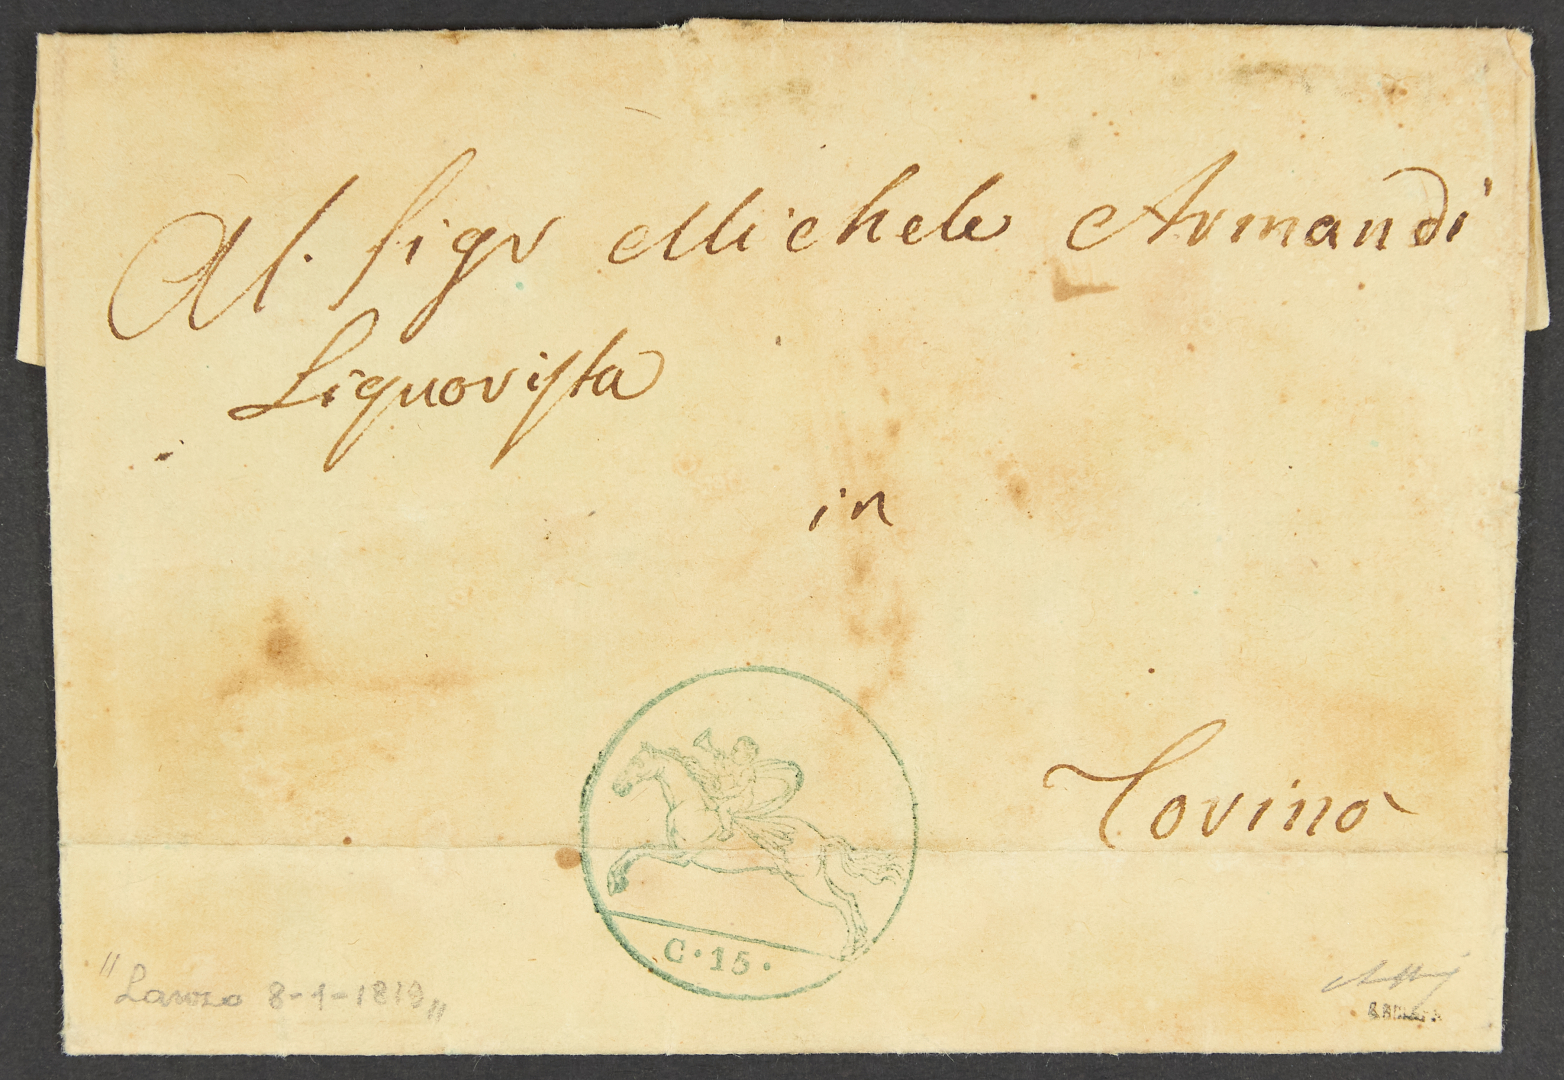 Al. Sigr Michele Armandi
Liquorista
in
Torino
C·15·
8-1-1819